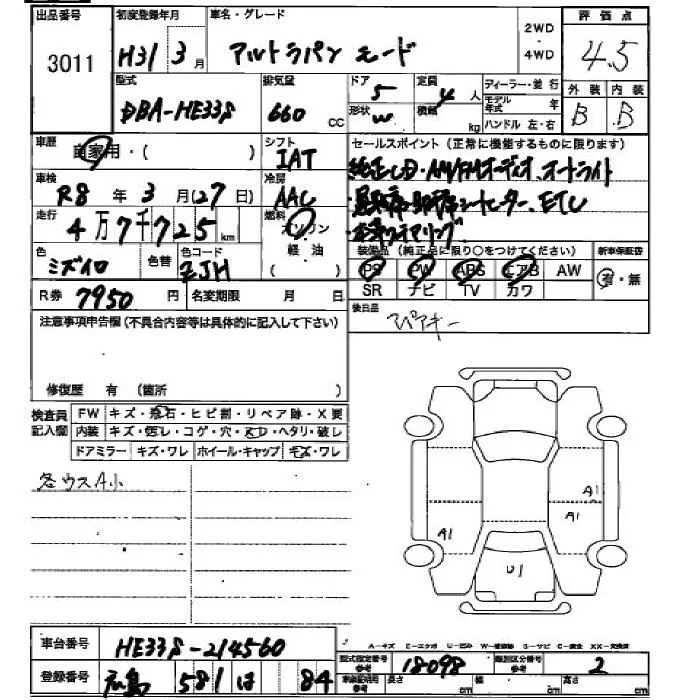 出品番号 初度登録年月 車名・グレード 2WD・4WD 評価点
3011 H31 3月 アルトラパン モード 4.5
型式 排気量 ドア 定員 ディーラー・並行 外装 内装
DBA-HE33S 660 CC 5 4人 モデル年式 年 B B
形状 W 積載 kg ハンドル 左・右
車歴 自家用・( ) シフト IAT セールスポイント(正常に機能するものに限ります)
純正CD・AM/FMオーディオ、オートライト
車検 R8年3月(27日) 冷房 AAC
シートヒーター、ETC
走行 4万7千725km 燃料 ガソリン 軽油 ( )
本革ステアリング
色 ミズイロ 色替 色コード ZJH
装備品(純正品に限り○をつけてください) 新車保証書
PS PW ABS エアB AW 有・無
SR ナビ TV カワ
R券 7950円 名変期限 月 日
後日品 スペアキー
注意事項申告欄(不具合内容等は具体的に記入して下さい)
修復歴 有 (箇所 )
検査員記入欄 FW キズ・飛石・ヒビ割・リペア跡・X要
内装 キズ・汚レ・コゲ・穴・スレ・ヘタリ・破レ
ドアミラー キズ・ワレ ホイール・キャップ キズ・ワレ
各ウスA小
A1
A1
A1
U1
A-キズ E-エクボ U-凹み W-補修跡 S-サビ C-腐食 XX-交換済
車台番号 HE33S-214560
型式指定番号 参考 18098 類別区分番号 参考 2
登録番号 広島 581 は 84
車庫証明用 参考 長さ cm 幅 cm 高さ cm